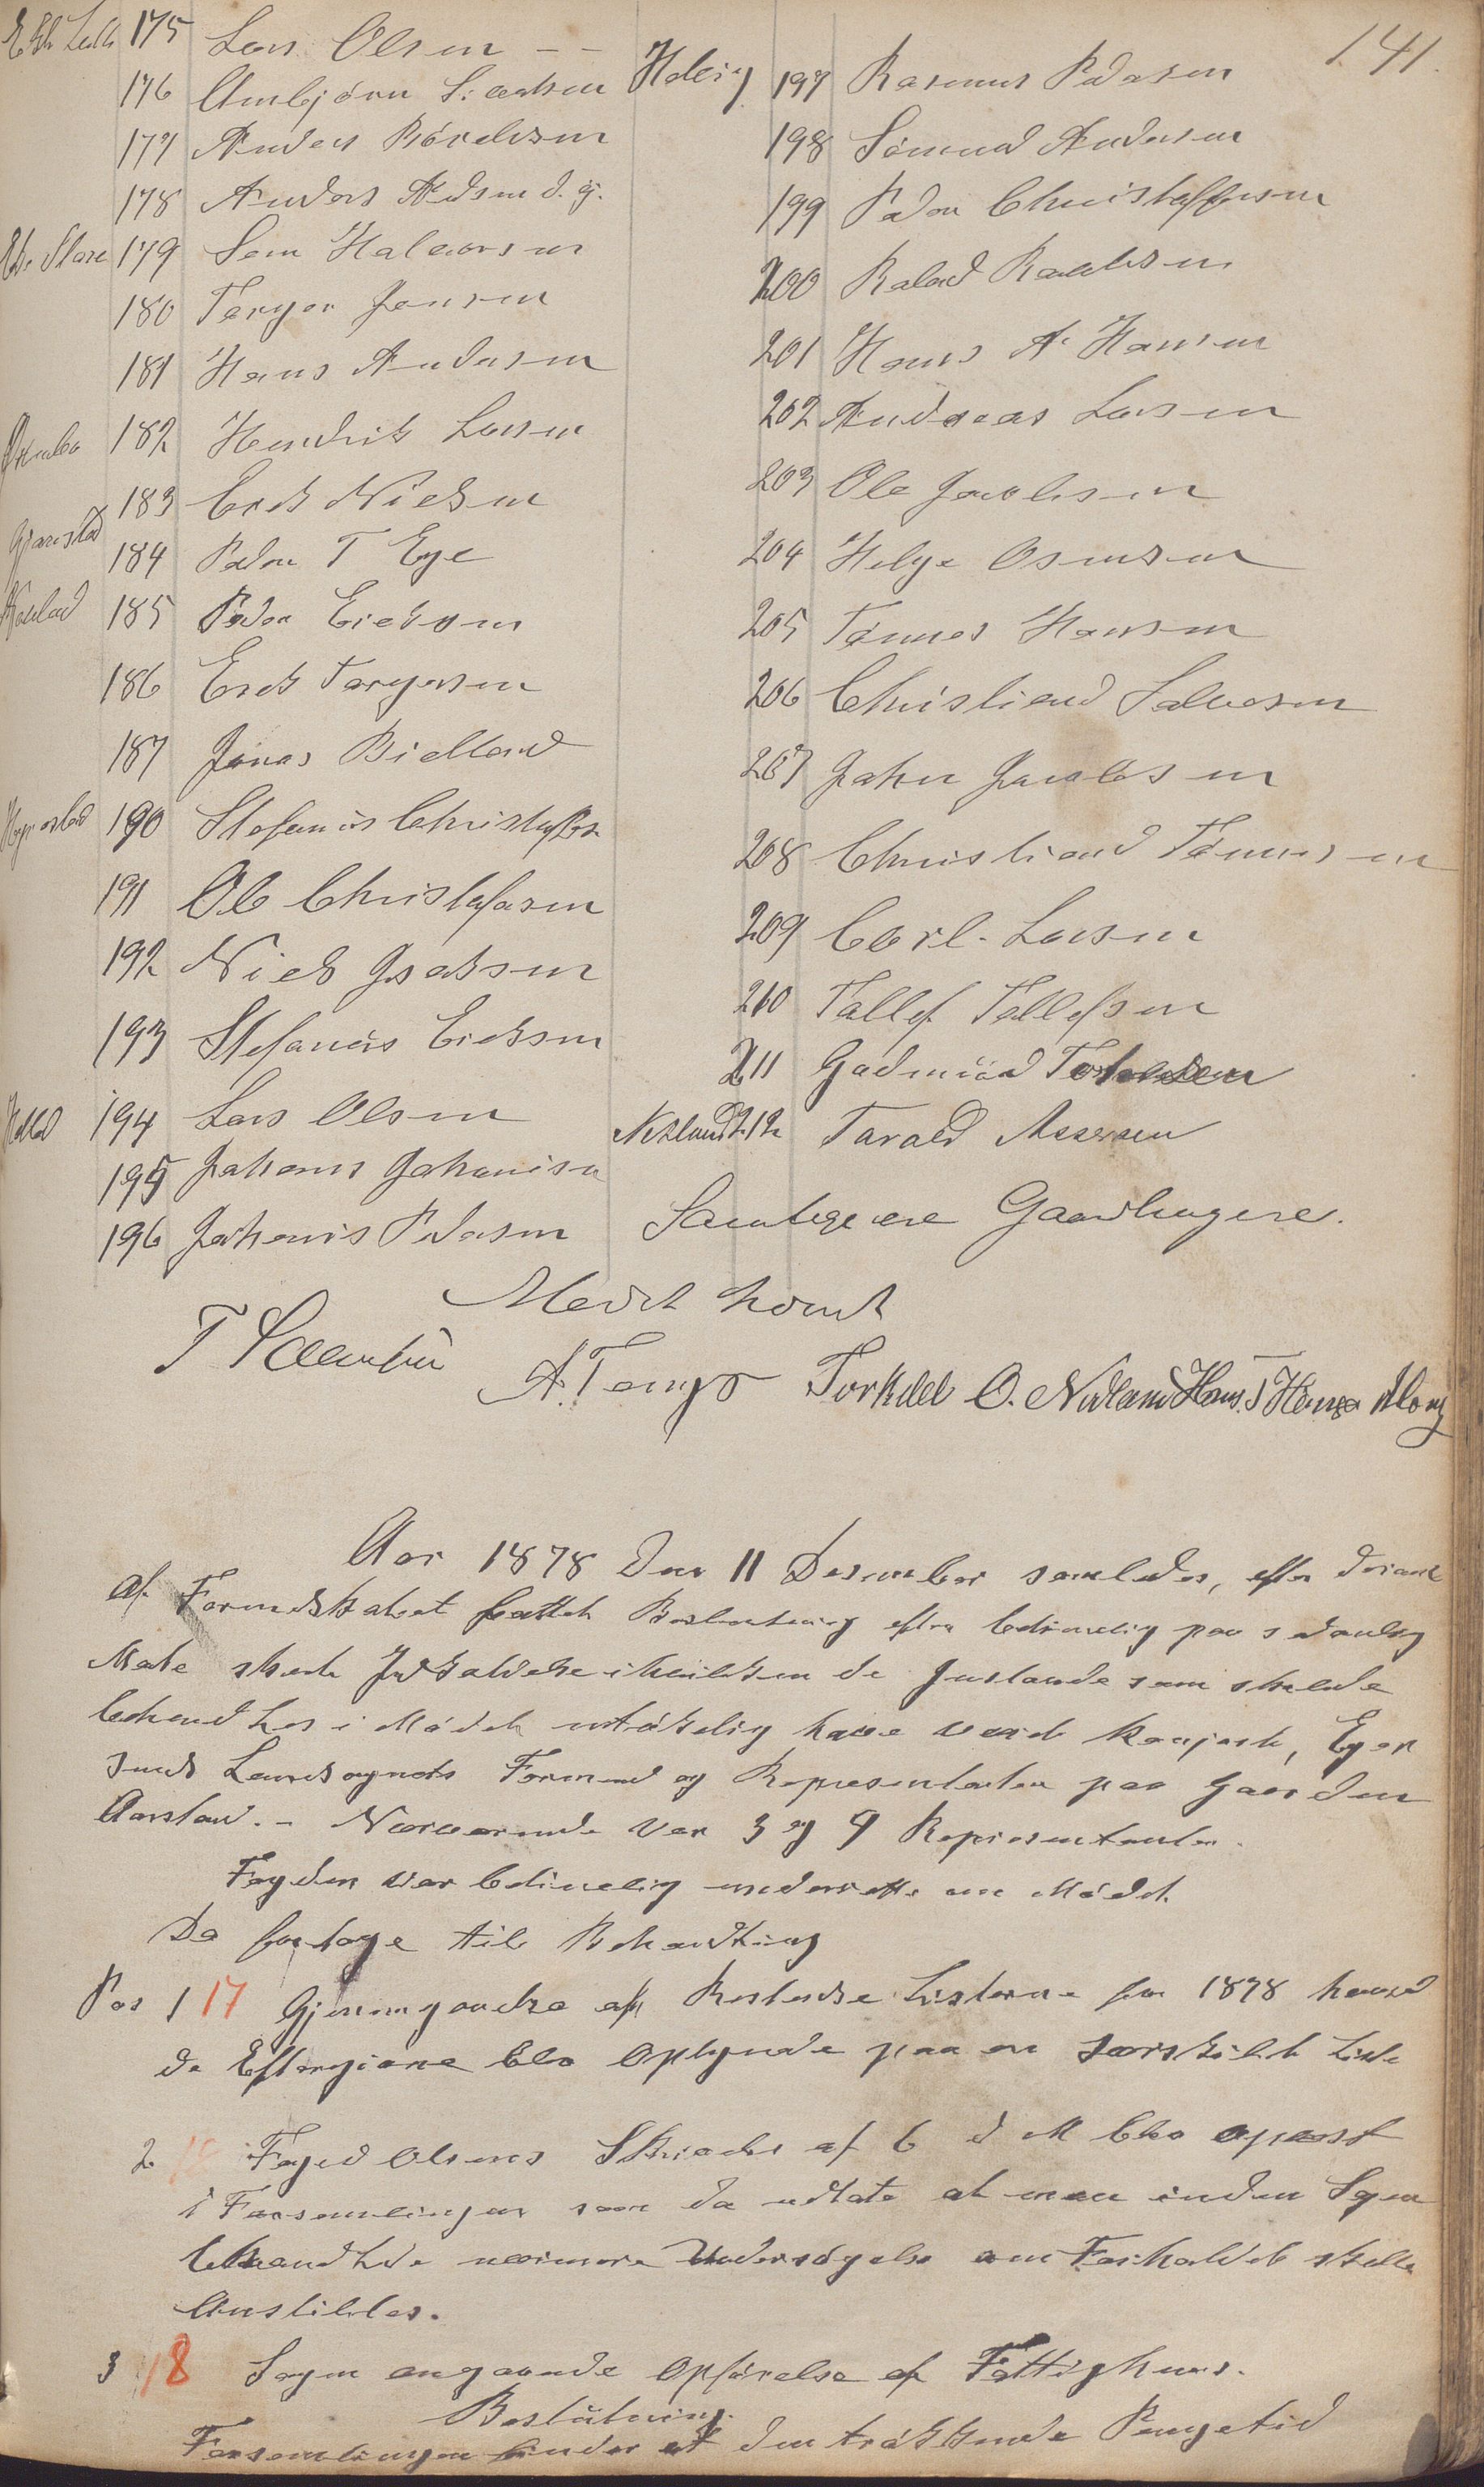 141.
175 Lars Olsen - -
176 Ambjörn Sivertsen
177 Anders Börildsen
178 Anders Andsen d. y.
179 Sem Halvorsen
180 Tarjer Jensen
181 Hans Andersen
182 Hendrik Larsen
183 Erik Nielsen
Gjarestad
184 Peder T Eye
185 Peder Eriksen
186 Erik Tarjersen
187 Jonas Bielland
190 Stefanus Christoffers
191 Ole Christofersen
192 Niels Isaksen
193 Stefanus Eriksen
194 Lars Olsen
195 Johanis Johanisen
196 Johanis Pedersen
197 Rasmus Pedersen
198 Sömund Andersen
199 Peder Christoffersen
200 Roland Rasmussen
201 Hans A Hansen
202 Andreas Larsen
203 Ole Jacobsen
204 Helge Osmunsen
205 Tönnes Hansen
206 Christian Salvesen
207 Jahn Jacobsen
208 Christian Tönnessen
209 Carl. Larsen
210 Tallef Tallefsen
211 Gudmund
212 Tarald Assersen
Samtlige ere Gaardbrugere.
Mødet hævet
A. Tengs Torkild O. Nidland Hans T Hansen
Aar 1878 den 11 Desember samledes, efter derom
af Formandskabet fattet Beslutning efter betimelig paa sedvanlig
Maade skede Indkaldelse i hvilken de Gjenstande som skulde
behandles i Mødet udtrøkelig have været kungjort, Eger
sunds Landsogns Formend og Representanter paa Gaarden
Aarstad. - Nærværende var 3 og 9 Representanter.
Fogden var betimelig underrettet om Mødet.
Da foretoges til Behandling
Pos 1 17 Gjennemgaaelse af Restanse Listerne for 1878 hvoraf
de Eftergivne blev optegnede paa en særskilt Liste
2 Foged Olsens Skrivelse af 6 d M blev oplæst
i Forsamlingen som da udtalte at man inden Sagen
behandlede nærmere Undersøgelse om Forholdet skulle
anstilles.
3 18 Sagen angaaende Opførelse af Fattighuus.
Beslutning.
Forsamlingen finder at den trøkkende Pengetid